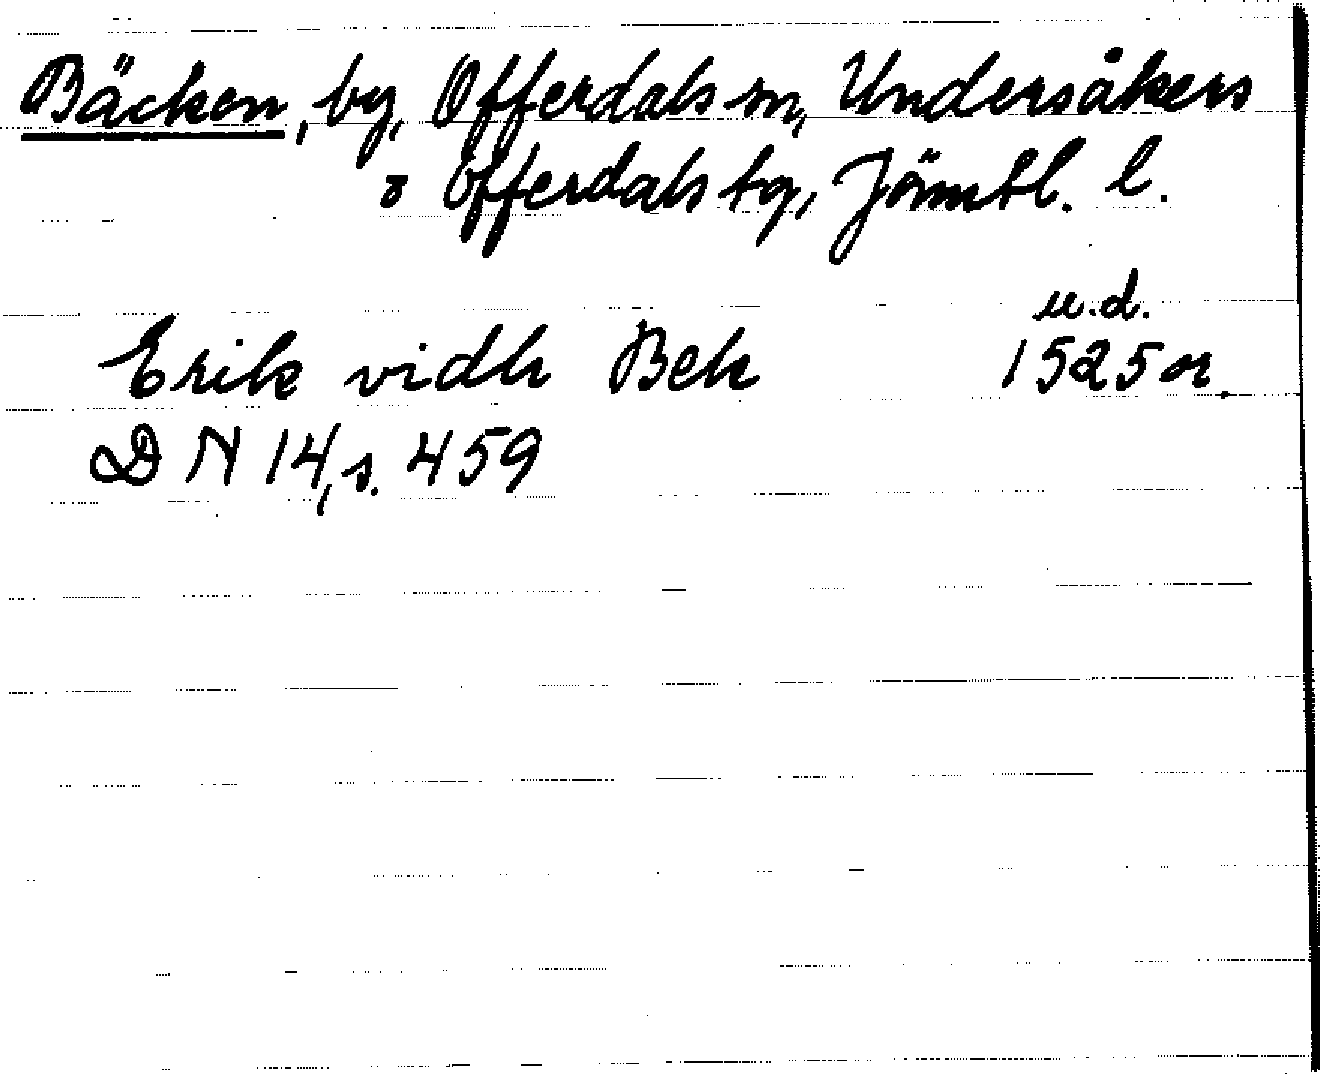 Bäcken, by, Offerdals sn, Undersåkers
o Offerdals tg, Jämtl. l.
u.d.
Erik vidh Bek 1525 or
D N 14, s. 459